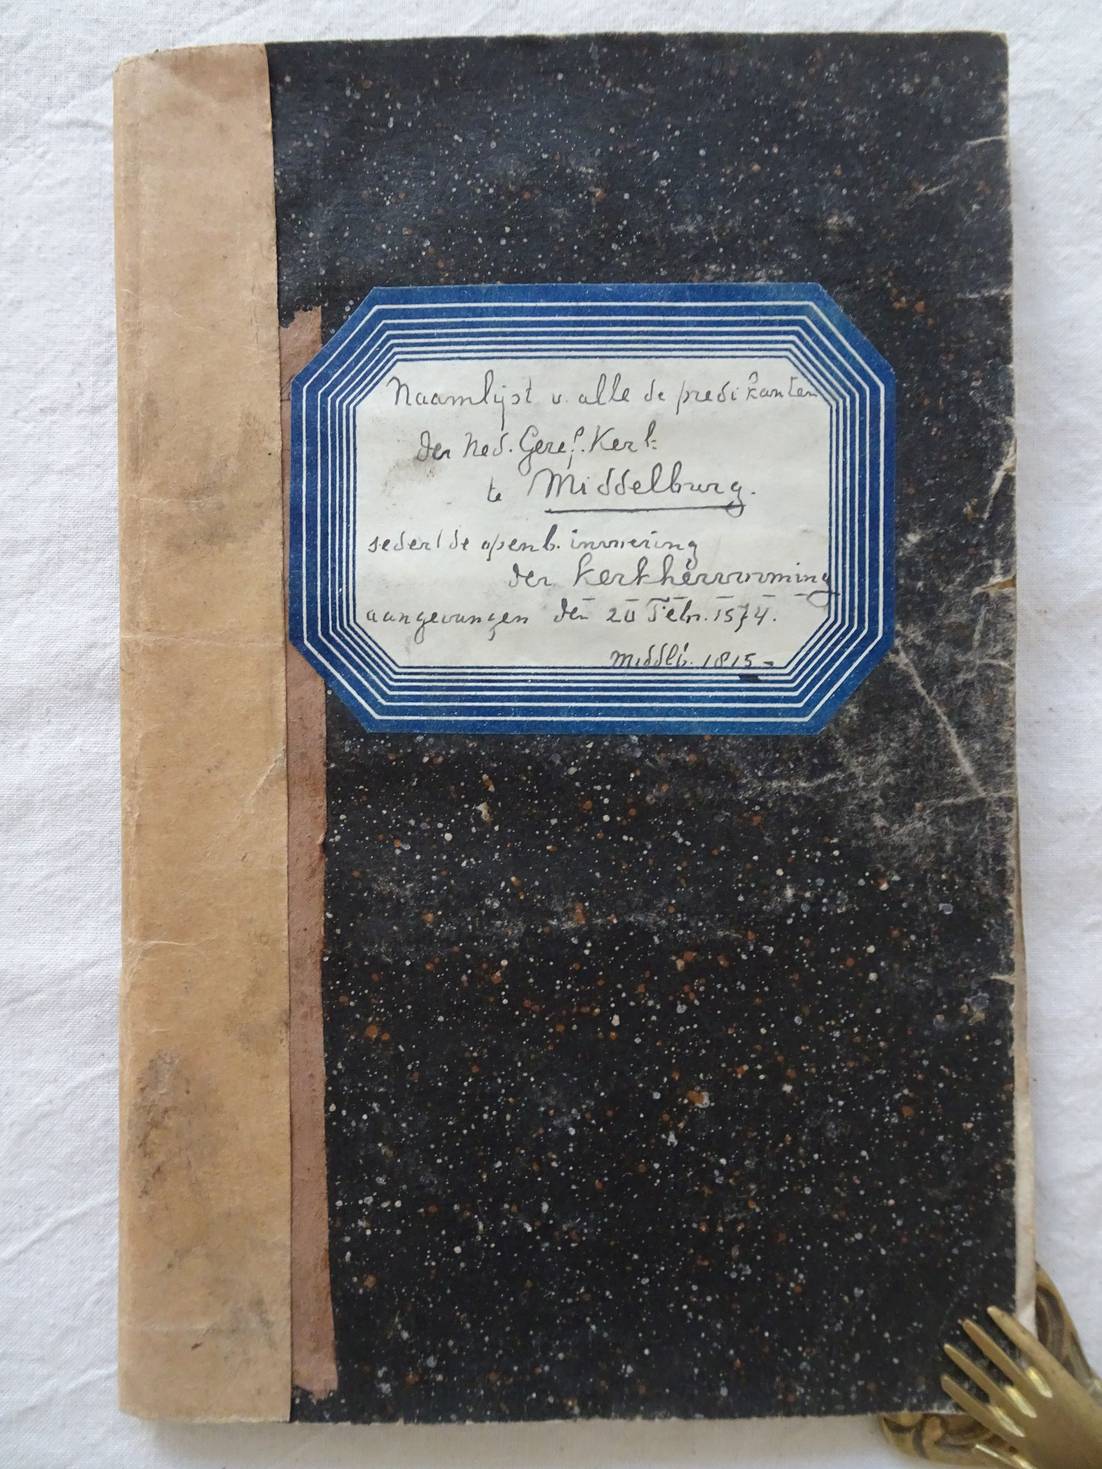 Naamlijst v. alle de predikanten
der Ned. Geref. Kerk
te Middelburg.
sedert de openb. invoering
der kerkhervorming
aangevangen den 20 Febr. 1574.
Middelb. 1815